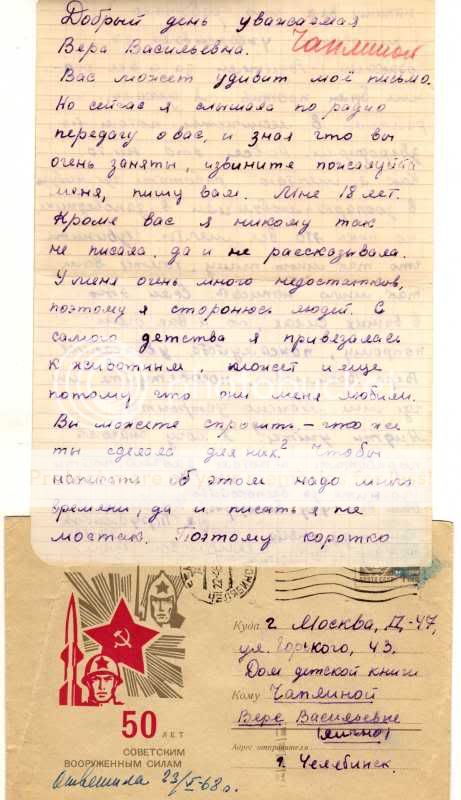 Добрый день уважаемая
Вера Васильевна. Чаплиной
Вас может удивит моё письмо.
Но сейчас я слышала по радио
передагу о вас, и зная что вы
очень заняты, извините пожалуйста
меня, пишу вам. Мне 18 лет.
Кроме вас я никому так
не писала, да и не рассказывала.
У меня очень много недостатков,
поэтому я сторонюсь людей. С
самого детства я привезалась
к животным, может и еще
потому что они меня любили.
Вы можете спросить, - что же
ты сделала для них? Чтобы
написать об этом надо много
времени, да и писать я не
мостак. Поэтому коротко
50 ЛЕТ
СОВЕТСКИМ
ВООРУЖЕННЫМ СИЛАМ
Ответила 23/V-68 г.
Куда г. Москва, Д-47,
ул. Горького, 43.
Дом детской книги
Кому Чаплиной
Вере Васильевне
(лично)
Адрес отправителя
г. Челябинск.